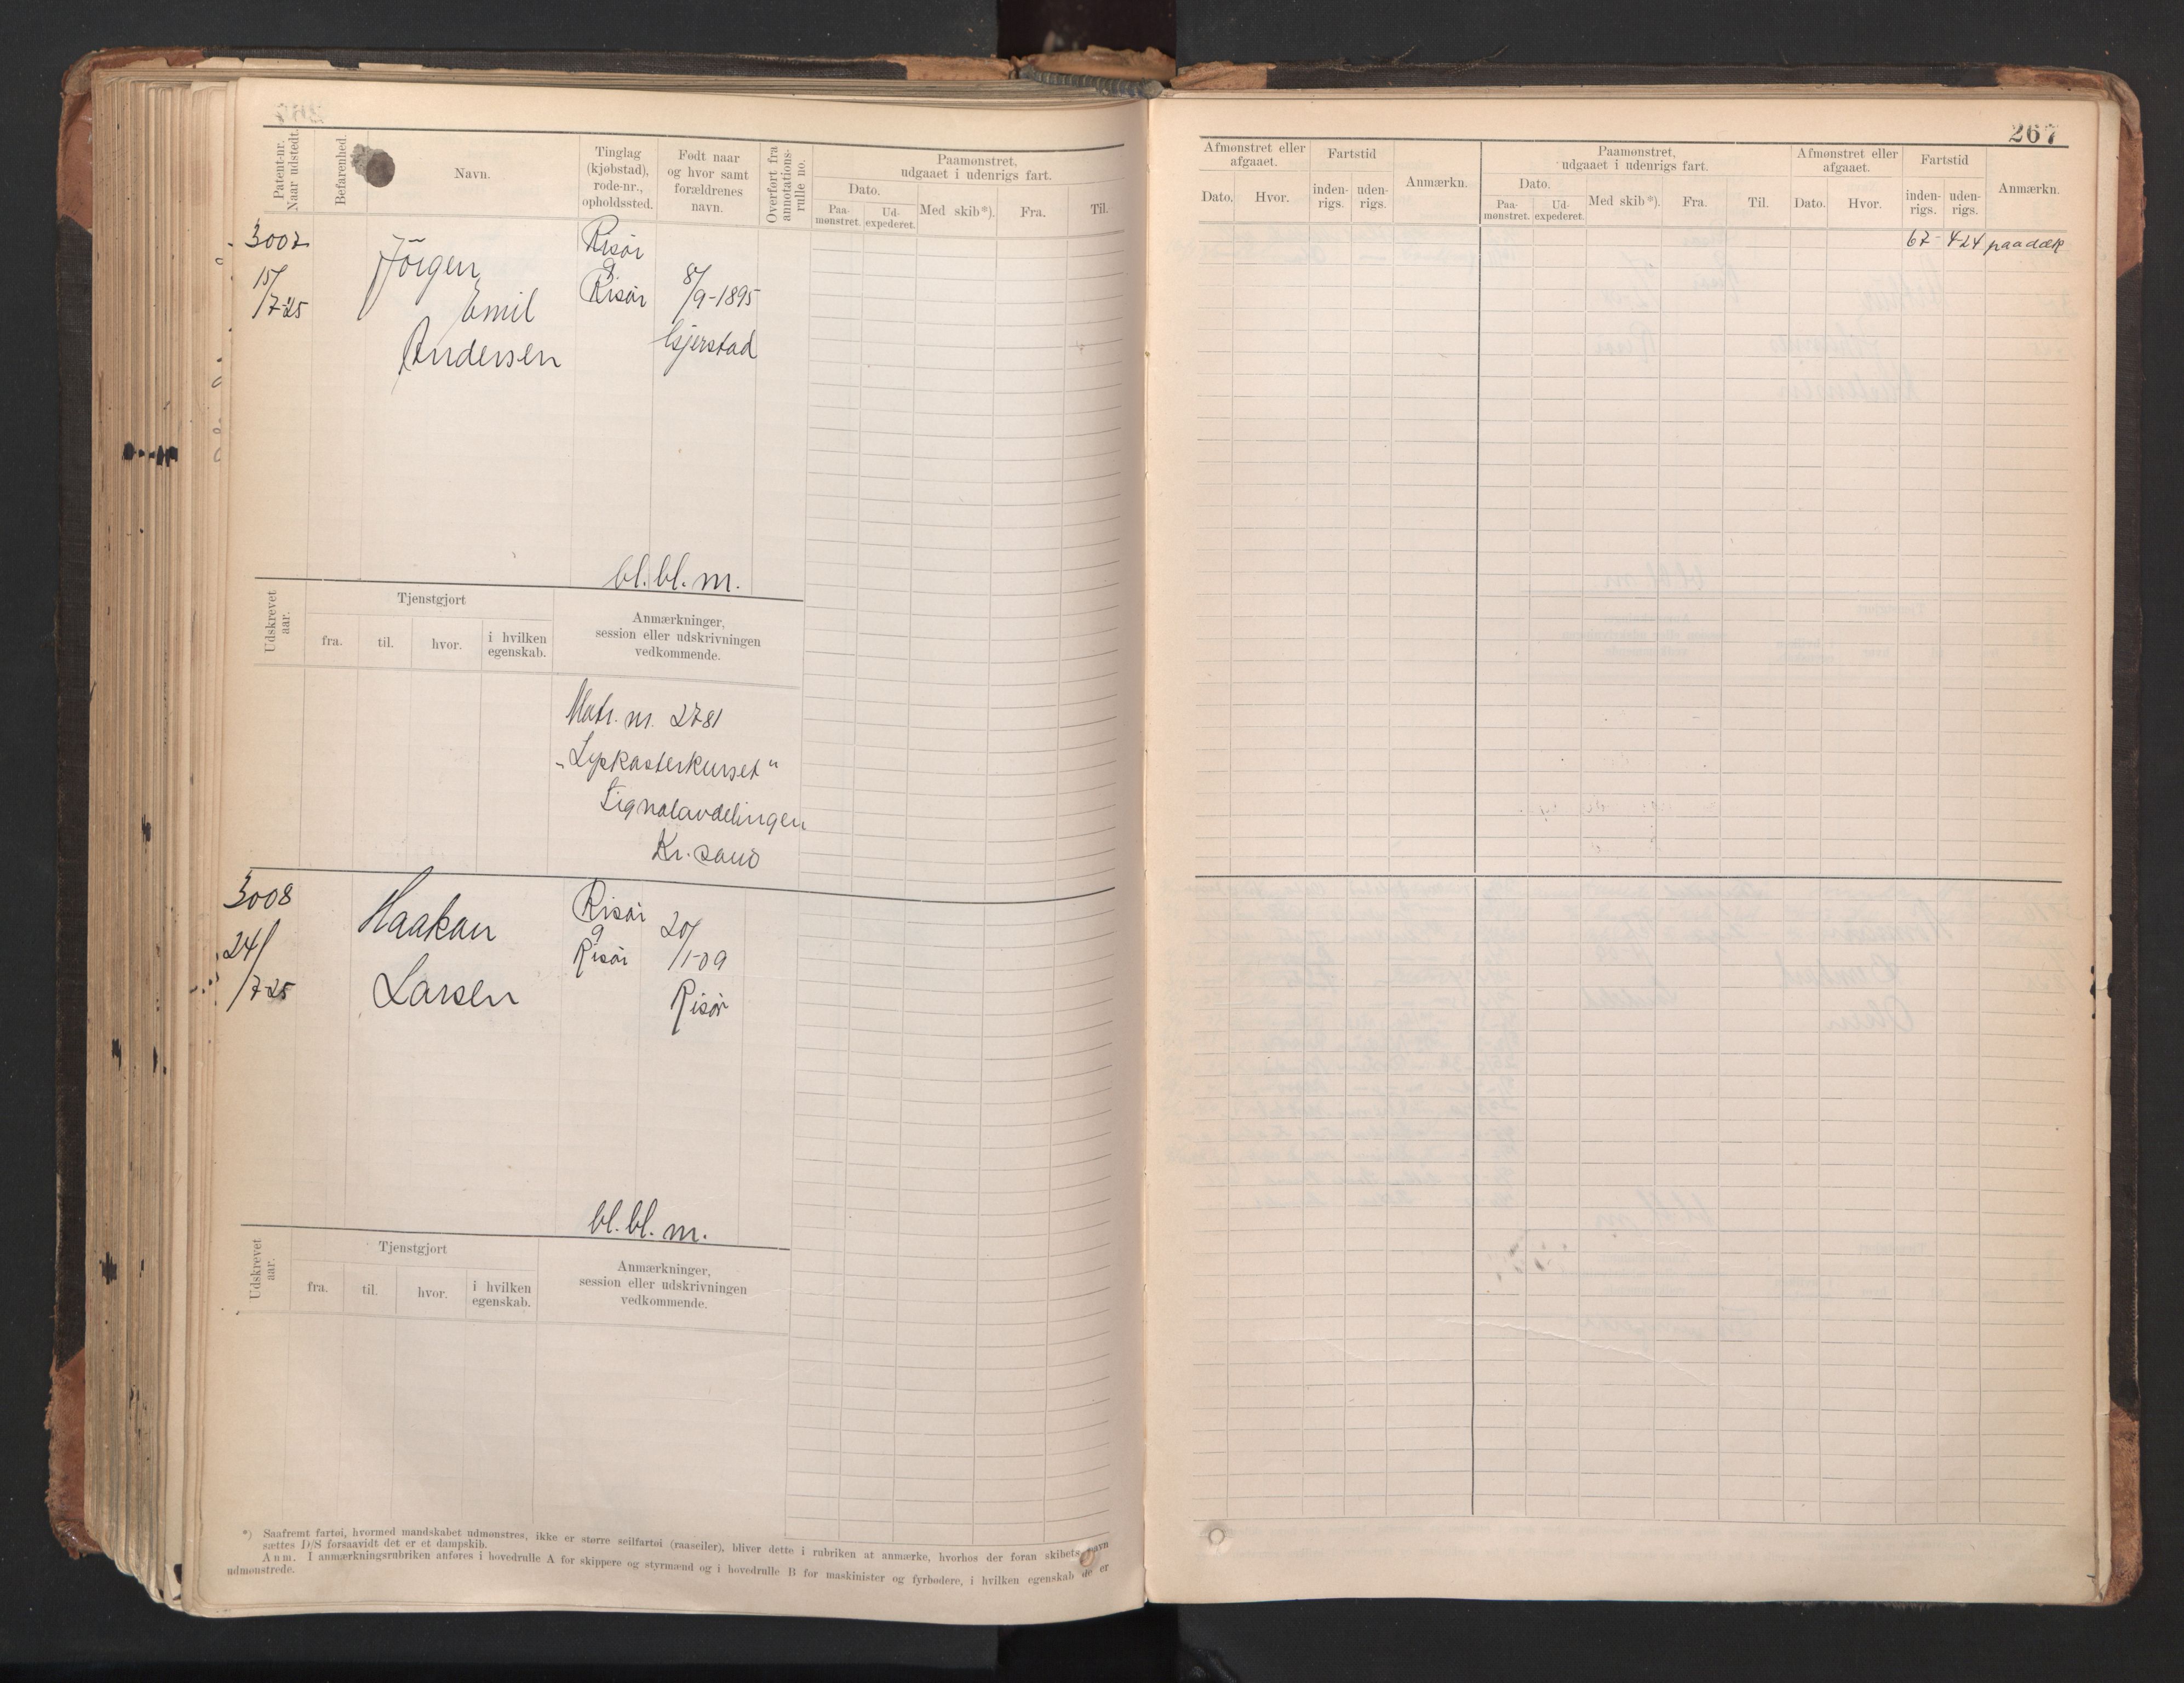 Patent-nr. Naar udstedt.
Befarenhed.
Navn.
Tinglag (kjøbstad), rode-nr., opholdssted.
Født naar og hvor samt forældrenes navn.
Overført fra annotations-rulle no.
Paamønstret, udgaaet i udenrigs fart.
Dato.
Paa-mønstret.
Ud-expederet.
Med skib*).
Fra.
Til.
3007
15/7-25
Jörgen
Emil
Andersen
Risör
9
Risör
8/9-1895
Gjerstad
bl. bl. m.
Udskrevet aar.
Tjenstgjort
fra.
til.
hvor.
i hvilken egenskab.
Anmærkninger, session eller udskrivningen vedkommende.
Matr. nr. 2781
„Lyskasterkurset“
Signalavdelingen
Kr.sand
3008
24/7-25
Haakon
Larsen
Risör
9
Risör
20/1-09
Risör
bl. bl. m.
Udskrevet aar.
Tjenstgjort
fra.
til.
hvor.
i hvilken egenskab.
Anmærkninger, session eller udskrivningen vedkommende.
*) Saafremt fartøi, hvormed mandskabet udmønstres, ikke er større seilfartøi (raaseiler), bliver dette i rubriken at anmærke, hvorhos der foran skibets navn
sættes D/S forsaavidt det er et dampskib.
Anm. I anmærkningsrubriken anføres i hovedrulle A for skippere og styrmænd og i hovedrulle B for maskinister og fyrbødere, i hvilken egenskab de er
udmønstrede.
267
Afmønstret eller afgaaet.
Dato.
Hvor.
Fartstid
inden-rigs.
uden-rigs.
Anmærkn.
Paamønstret, udgaaet i udenrigs fart.
Dato.
Paa-mønstret.
Ud-expederet.
Med skib*).
Fra.
Til.
Afmønstret eller afgaaet.
Dato.
Hvor.
Fartstid
inden-rigs.
uden-rigs.
Anmærkn.
67- 424 paa dæk